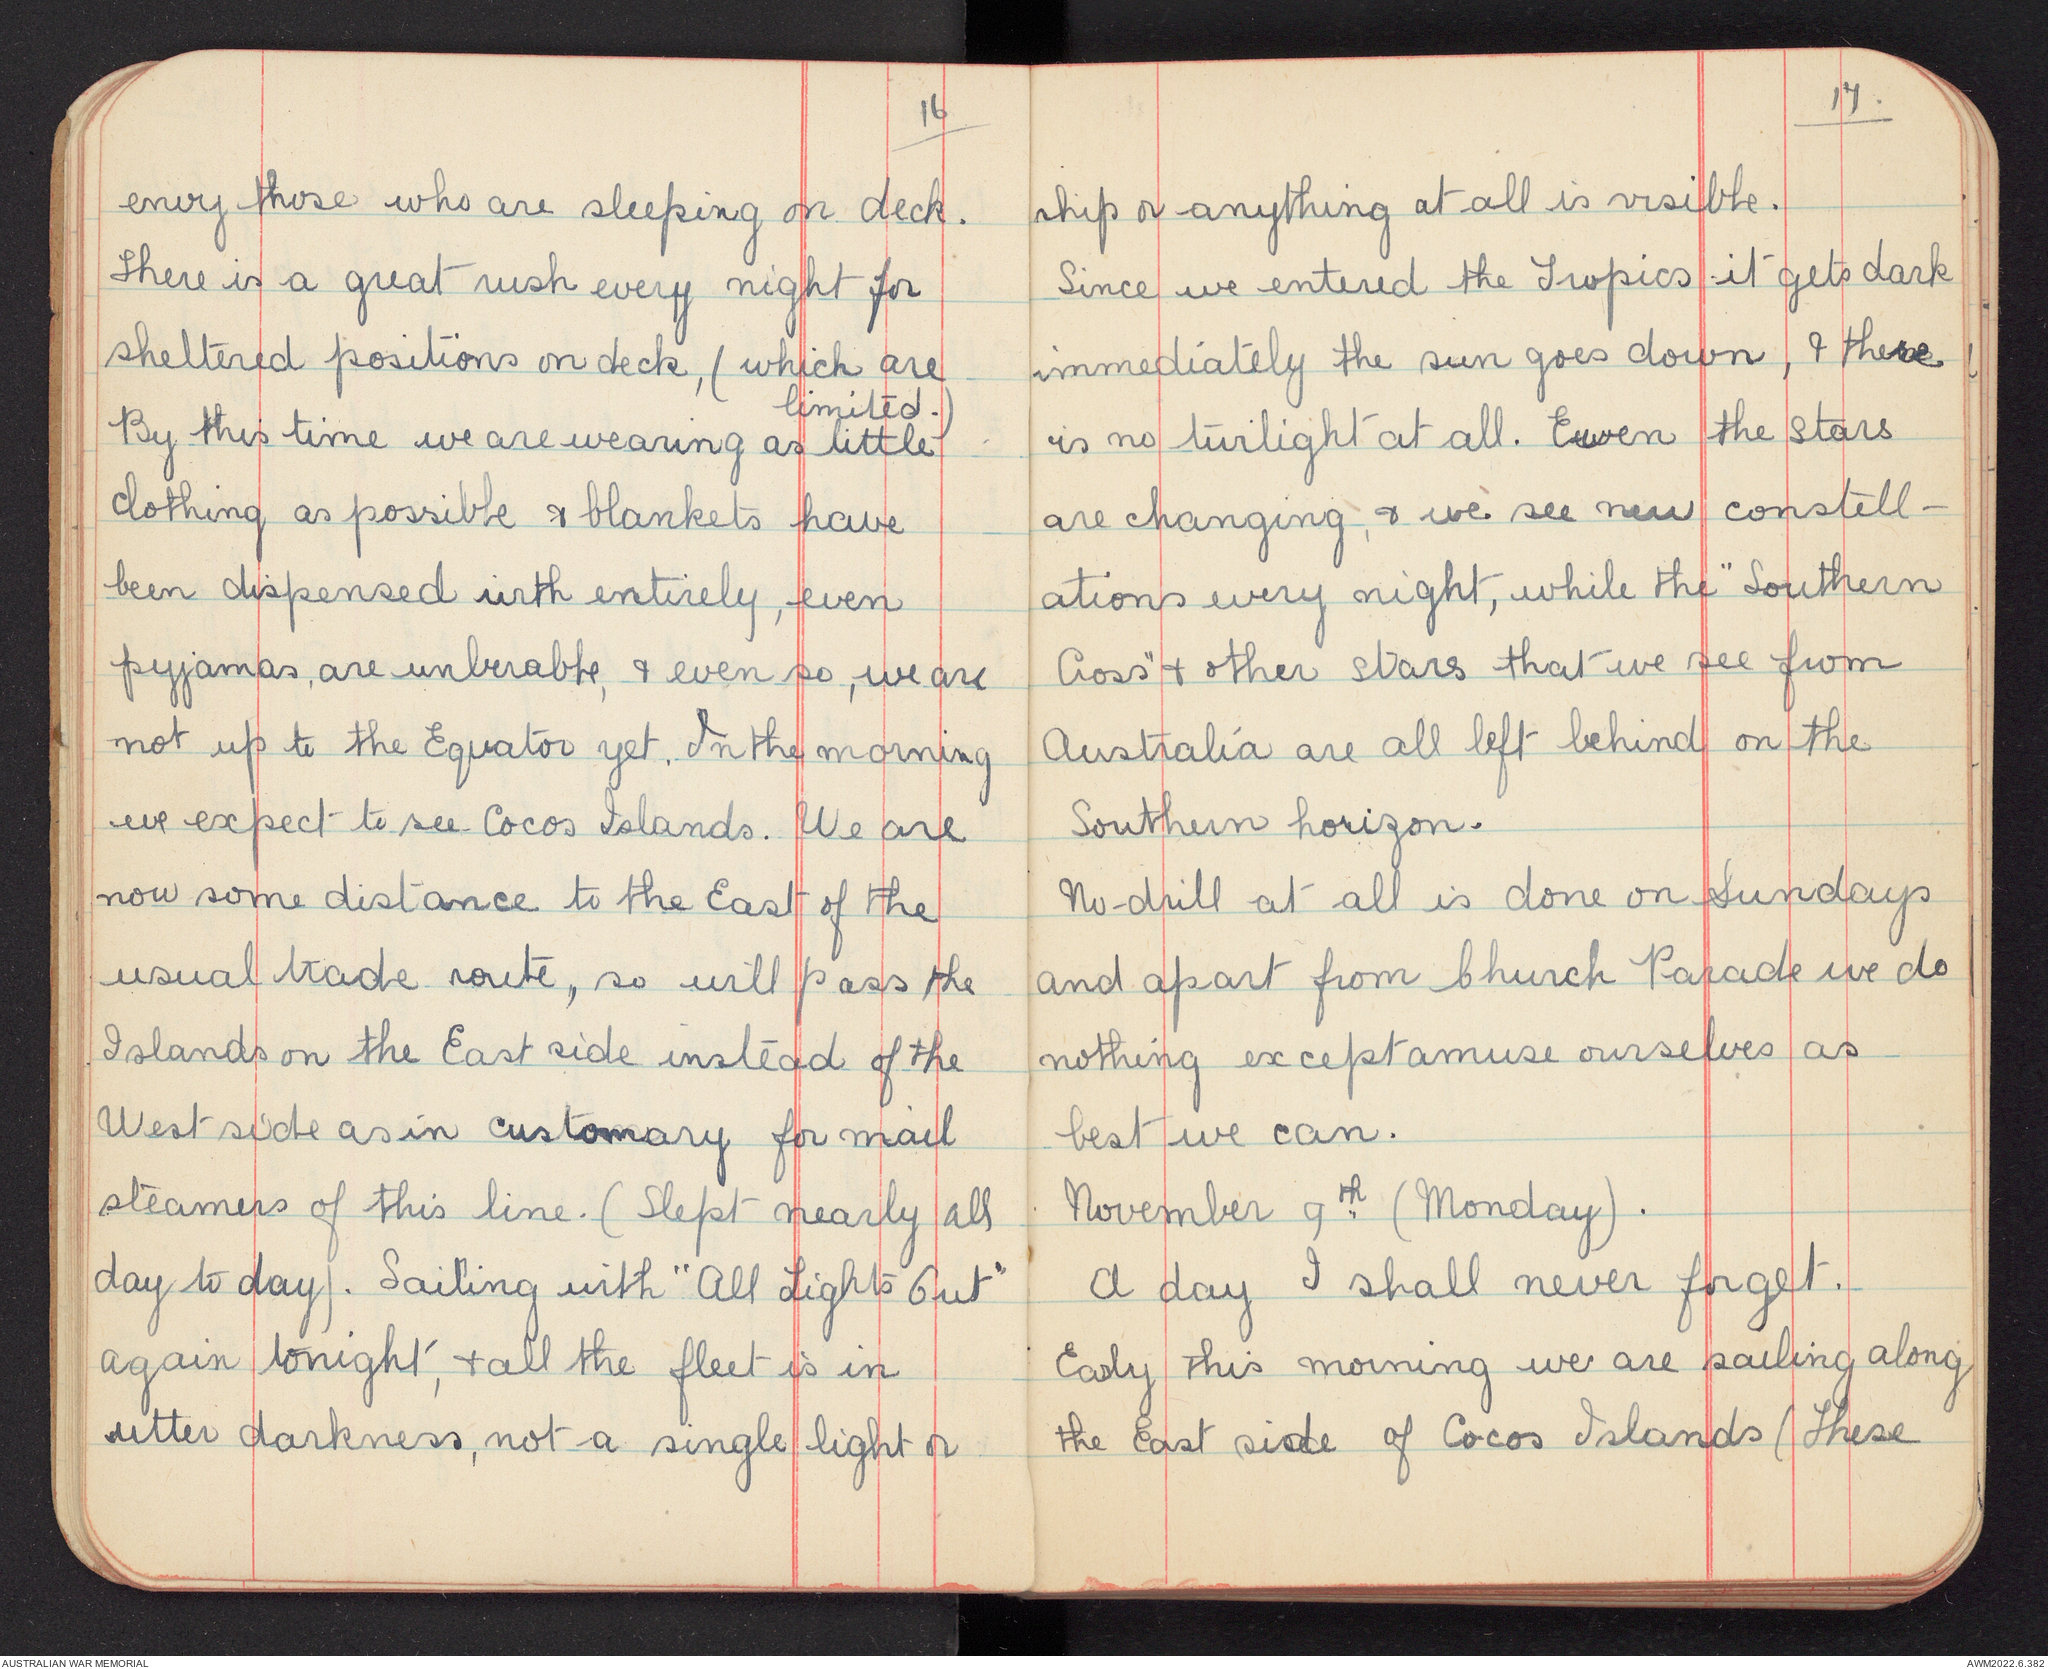 16
envy those who are sleeping on deck.
There is a great rush every night for
sheltered positions on deck, (which are
limited.)
By this time we are wearing as little
clothing as possible & blankets have
been dispensed with entirely, even
pyjamas, are unberable, & even so, we are
not up to the Equator yet. In the morning
we expect to see Cocos Islands. We are
now some distance to the East of the
usual trade route, so will pass the
Islands on the East side instead of the
West side as in customary for mail
steamers of this line. (Slept nearly all
day to day). Sailing with "All Lights Out"
again tonight, & all the fleet is in
utter darkness, not a single light or
17.
ship or anything at all is visible.
Since we entered the Tropics it gets dark
immediately the sun goes down, & there
is no twilight at all. Even the stars
are changing, & we see new constell-
ations every night, while the "Southern
Cross" & other stars that we see from
Australia are all left behind on the
Southern horizon.
No drill at all is done on Sundays
and apart from Church Parade we do
nothing except amuse ourselves as
best we can.
November 9th (Monday).
A day I shall never forget.
Early this morning we are sailing along
the East side of Cocos Islands (These
AUSTRALIAN WAR MEMORIAL
AWM2022.6.382